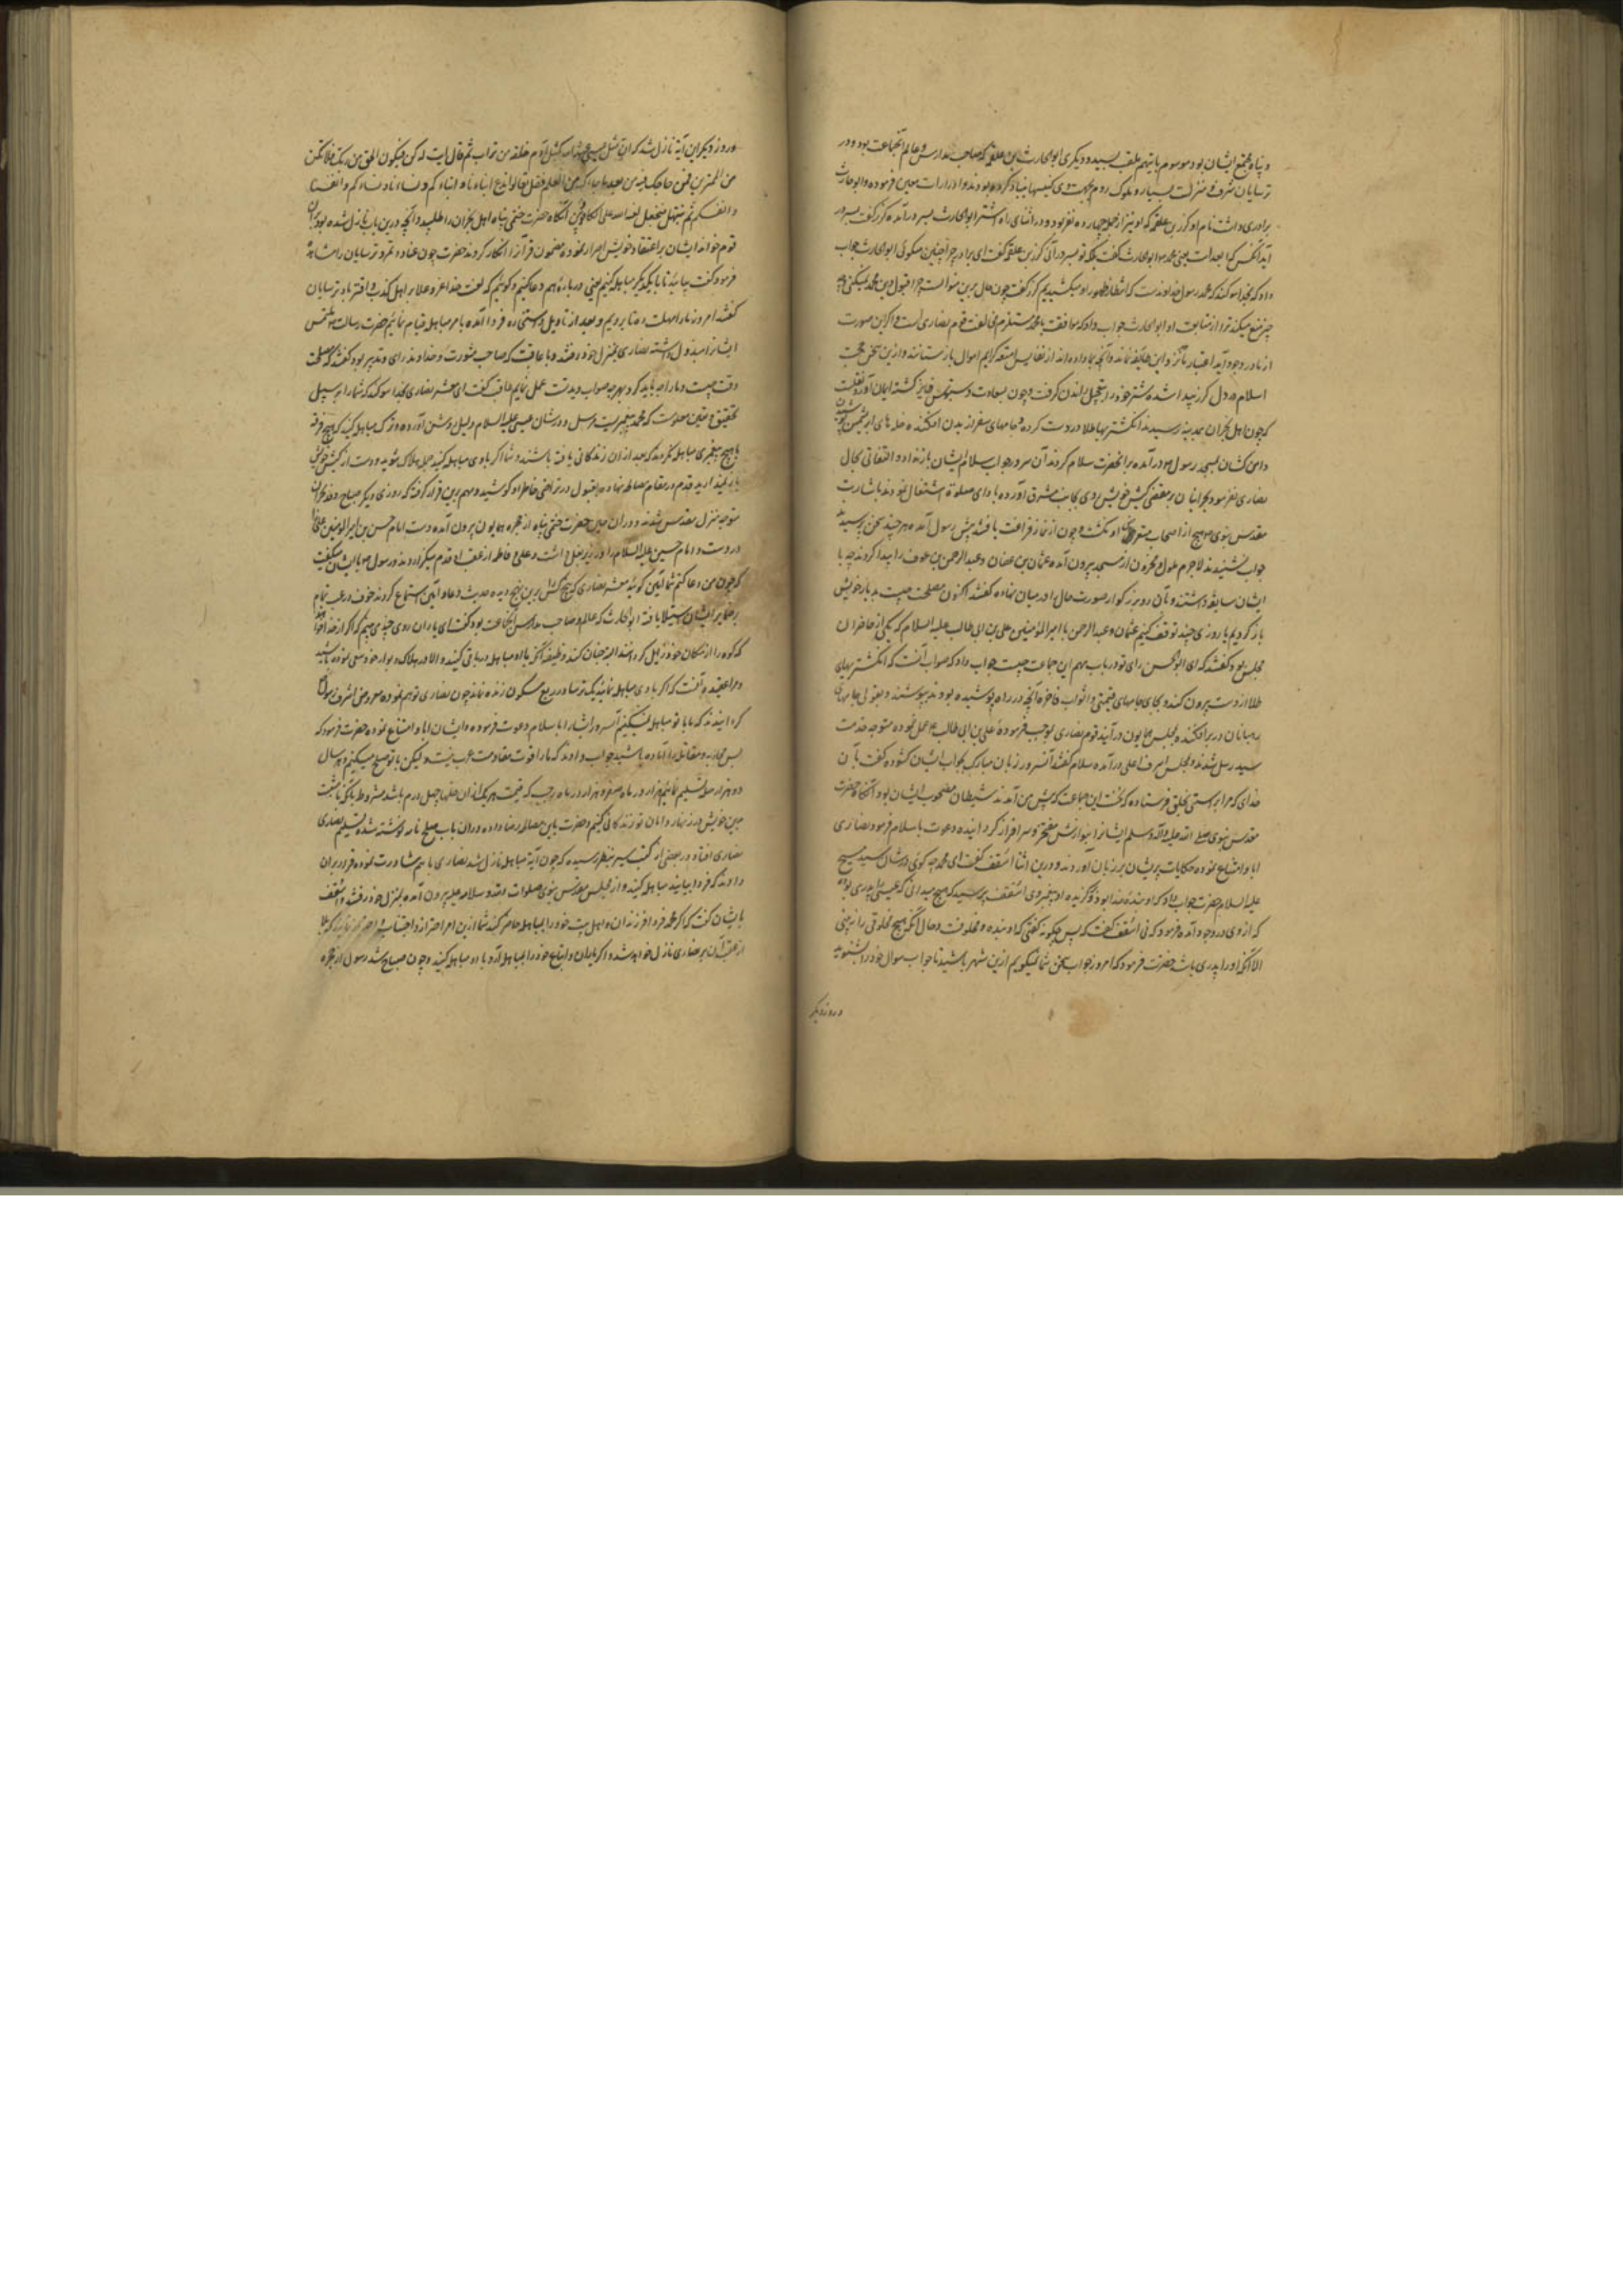 و پناه مجمع ایشان بود موسوم بایهم ملقب بسید و دیگری ابوالحارث بن علقمه که صاحب مدارس و عالم آنجماعت بود و در
ترسایان شرف و منزلت بسیار و ملوک روم بجهت وی کنیسها بنیاد کرده بودند و ادرارات معین فرموده و ابوحارث
برادری داشت نام او کرز بن علقمه که او نیز از جمله چهارده نفر بود و در اثنای راه اشتر ابوالحارث بسر درآمده کرز گفت بسر در
آید آنکس که ابعد است یعنی محمد ابوالحارث گفت بلکه تو بسر درآئی کرز بن علقمه گفت ای برادر چرا چنین میگوئی ابوالحارث جواب
داد که بخدا سوگند که محمد رسول خداوندست که انتظار ظهور او میکشیدیم کرز گفت چون حال برین منوالست چرا قبول دین محمد نمیکنی و
چیز منع میکند ترا از متابعت او ابوالحارث جواب داد که موافقت با محمد مستلزم مخالفت قوم نصاری است و اگر این صورت
از ما در وجود آید اعتبار ما نزد این طایفه نماند و آنچه بما داده‌اند از نفایس امتعه و کرایم اموال بازستانند و ازین سخن محبت
اسلام در دل کرز پیدا شده شتر خود را بتعجیل راندن گرفت و چون بسعادت دستبوس فایز گشته ایمان آورد نقلست
که چون اهل نجران بمدینه رسیدند انگشتریها طلا در دست کرده و جامهای سفر از بدن افکنده حله های ابریشمین پوشیدند
دامن کشان بمسجد رسول درآمده بر آنحضرت سلام کردند آن سرور جواب سلام ایشان باز نداد و التفاتی بحال
نصاری نفرمود و نجرانیان بر مقتضی کیش خویش روی بجانب مشرق آورده بادای صلوة اشتغال نمودند باشارت
مقدس نبوی هیچ از اصحاب متعرض او نگشت و چون از نماز فراغت یافتند پیش رسول آمده هر چند سخن پرسیدند
جواب نشنیدند لاجرم ملول و محزون از مسجد بیرون آمده عثمان بن عفان و عبدالرحمن بن عوف را پیدا کردند چه با
ایشان سابقه داشتند و بآن دو بزرگوار صورت حال را در میان نهاده گفتند اکنون مصلحت چیست بدیار خویش
باز گردیم یا روزی چند توقف کنیم عثمان و عبدالرحمن با امیرالمؤمنین علی بن ابی طالب علیه السلام که یکی از حاضران
مجلس بود گفتند که ای ابوالحسن رای تو در باب مهم این جماعت چیست جواب داد که صواب آنست که انگشتریهای
طلا از دست بیرون کنند و بجای جامهای قیمتی و اثواب فاخره آنچه در راه پوشیده بودند بپوشند و بعنوانی جامهای
رهبانان در بر افکنده بمجلس همایون درآیند قوم نصاری بموجب فرموده علی بن ابی طالب عمل نموده متوجه خدمت
سید رسل شدند و بمجلس اشرف اعلی درآمده سلام گفتند آن سرور زبان مبارک بجواب ایشان گشوده گفت بآن
خدای که مرا براستی بخلق فرستاده که نخست این جماعت که پیش من آمدند شیطان مصحوب ایشان بود آنگاه حضرت
مقدس نبوی صلی الله علیه وآله وسلم ایشانرا بنوازش مفتخر و سرافراز گردانیده دعوت باسلام فرمود نصاری
ابا و امتناع نموده حکایات پریشان بر زبان آوردند و درین اثنا اسقف گفت ای محمد چه گوئی در شان سید مسیح
علیه السلام حضرت جواب داد که او بنده خدا بود و برگزیده او پیغمبر وی اسقف پرسید که هیچ میدانی که عیسی را پدری بوده
که از وی در وجود آمده فرمود که نی اسقف گفت که پس چگونه گفتی که او بنده و مخلوقست و حال آنکه هیچ مخلوقی را نه بینی
الا آنکه او را پدری باشد حضرت فرمود که امروز جواب سخن شما نمیگویم ازین شهر باشید تا جواب سوال خود را بشنوید
و روز دیگر
و روز دیگر این آیة نازل شد که ان مثل عیسی عند الله کمثل آدم خلقه من تراب ثم قال له کن فیکون الحق من ربک فلا تکن
من الممترین فمن حاجک فیه من بعد ما جاءک من العلم فقل تعالوا ندع ابناءنا و ابناءکم و نساءنا و نساءکم و انفسنا
و انفسکم ثم نبتهل فنجعل لعنة الله علی الکاذبین آنگاه حضرت ختمی پناه اهل نجران را طلبید و آنچه درین باب نازل شده بود بران
قوم خواند ایشان بر اعتقاد خویش اصرار نموده مضمون قرآنرا انکار کردند حضرت چون عناد و تمرد ترسایان را مشاهده
فرمود گفت بیائید تا با یکدیگر مباهله کنیم یعنی درباره هم دعا کنیم و گوئیم که لعنت خدا عز و علا بر اهل کذب و افترا باد ترسایان
گفتند امروز ما را مهلت ده تا برویم و بعد از تاویل و استخاره فردا آمده بامر مباهله قیام نمائیم حضرت رسالت ملتمس
ایشانرا مبذول داشته نصاری بمنزل خود رفتند و با عاقب که صاحب مشورت و خداوند رای و تدبیر بود گفتند که مصلحت
وقت چیست و ما را چه باید کرد بهر چه صواب دیدت عمل نمائیم عاقب گفت ای معشر نصاری بخدا سوگند که شما را بر سبیل
تحقیق و یقین معلومست که محمد پیغمبریست مرسل و در شان عیسی علیه السلام دلیل روشن آورده و ترک مباهله کنید که هیچ فرقه
با هیچ پیغمبری مباهله نکردند که بعد از آن زندگانی یافته باشند و شما اگر با وی مباهله کنید جمله هلاک شوید و دست از کیش خویش
باز نمیدارید قدم در مقام مصالحه نهاده بقبول در تراضی خاطر او کوشید و مهم برین قرار گرفته که روزی دیگر صباح وفد نجران
متوجه منزل مقدس شدند و در آن حین حضرت ختمی پناه از حجره همایون بیرون آمده دست امام حسن بن امیرالمؤمنین علی
در دست و امام حسین علیه السلام را در زیر بغل داشت و علی و فاطمه از عقب او قدم میگزاردند و رسول با ایشان میگفت
که چون من دعا کنم شما آمین گوئید معشر نصاری که پنج کس برین نهج دیدند حدیث دعا و آمین استماع کردند خوف و رعب تمام
بر ضمایر ایشان استیلا یافته ابوالحارث که عالم و صاحب مدارس آنجماعت بود گفت ای یاران روی چندی می‌بینم که اگر از خدا خواهند
که کوه را از مکان خود زایل کرداند البته چنان کند وظیفه آنکه با او مباهله و ملاقی نکنید و الا در هلاک و بوار خود سعی نموده باشید
و مرا عقیده آنست که اگر با وی مباهله نمائید یک ترسا در ربع مسکون زنده نماند چون نصاری توهم نموده معروض اشرف رسول
گردانیدند که ما با تو مباهله نمیکنیم آن سرور ایشانرا باسلام دعوت فرمود و ایشان ابا و امتناع نموده حضرت فرمود که
پس محاربه و مقاتله را آماده باشید جواب دادند که ما را قوت مقاومت عرب نیست ولیکن با تو صلح میکنیم و هر سال
دو هزار حله تسلیم نمائیم هزار در ماه صفر و هزار در ماه رجب که قیمت هر یک از آن حلها چهل درم باشد مشروط بآنکه ما بمشیت
دین خویش در زنهار و امان تو زندگانی کنیم و حضرت باین مصالحه رضا داده و در آن باب صلح نامه نوشته شده تسلیم نصاری
نصاری افتاد و در بعضی از کتب سیر بنظر رسیده که چون آیة مباهله نازل شد نصاری با هم مشاورت نموده قرار بران
دادند که فردا بیایند مباهله کنند و از مجلس مقدس نبوی صلوات الله و سلامه علیه بیرون آمده بمنزل خود رفتند و اسقف
بایشان گفت که اگر محمد فردا فرزندان و اهل بیت خود را بمباهله حاضر کند شما ازین امر احتراز و اجتناب نمائید که بلا
از عقب آن بر نصاری نازل خواهد شد و اگر یاران و اتباع خود را بمباهله آرد با او مباهله کنید و چون صباح شد رسول از حجره